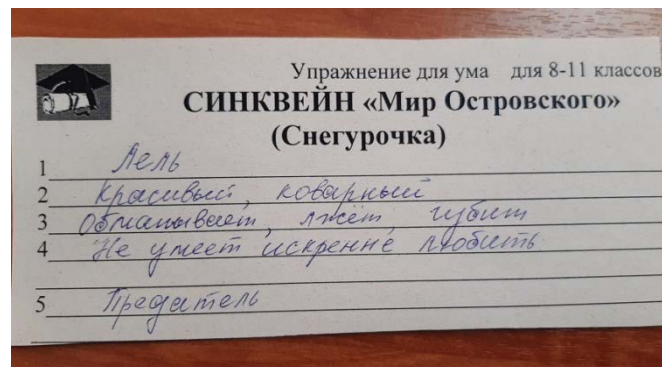 Упражнение для ума для 8-11 классов
СИНКВЕЙН «Мир Островского»
(Снегурочка)
1 Лель
2 Красивый, коварный
3 Обманывает, лжёт, губит
4 Не умеет искренне любить
5 Предатель